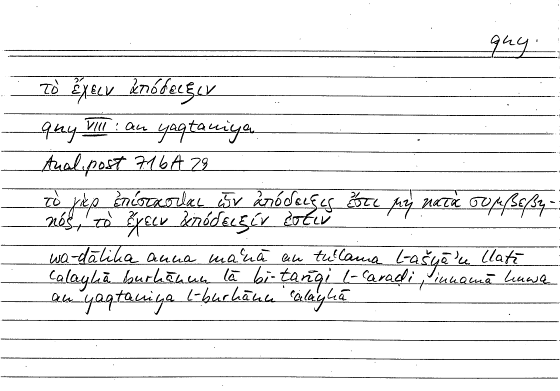 qny.
τὸ ἔχειν ἀπόδειξιν
qny VIII: an yaqtaniya
Anal. post 71bA 29
τὸ γὰρ ἐπίστασθαι ὧν ἀπόδειξις ἔστι μὴ κατὰ συμβεβη-
κός, τὸ ἔχειν ἀπόδειξίν ἐστιν
wa-ḏālika anna maʿnā an tuʿlama l-ašyāʾu llatī
ʿalayhā burhānun lā bi-ṭarīqi l-ʿaraḍi, innamā huwa
an yaqtaniya l-burhānu ʿalayhā